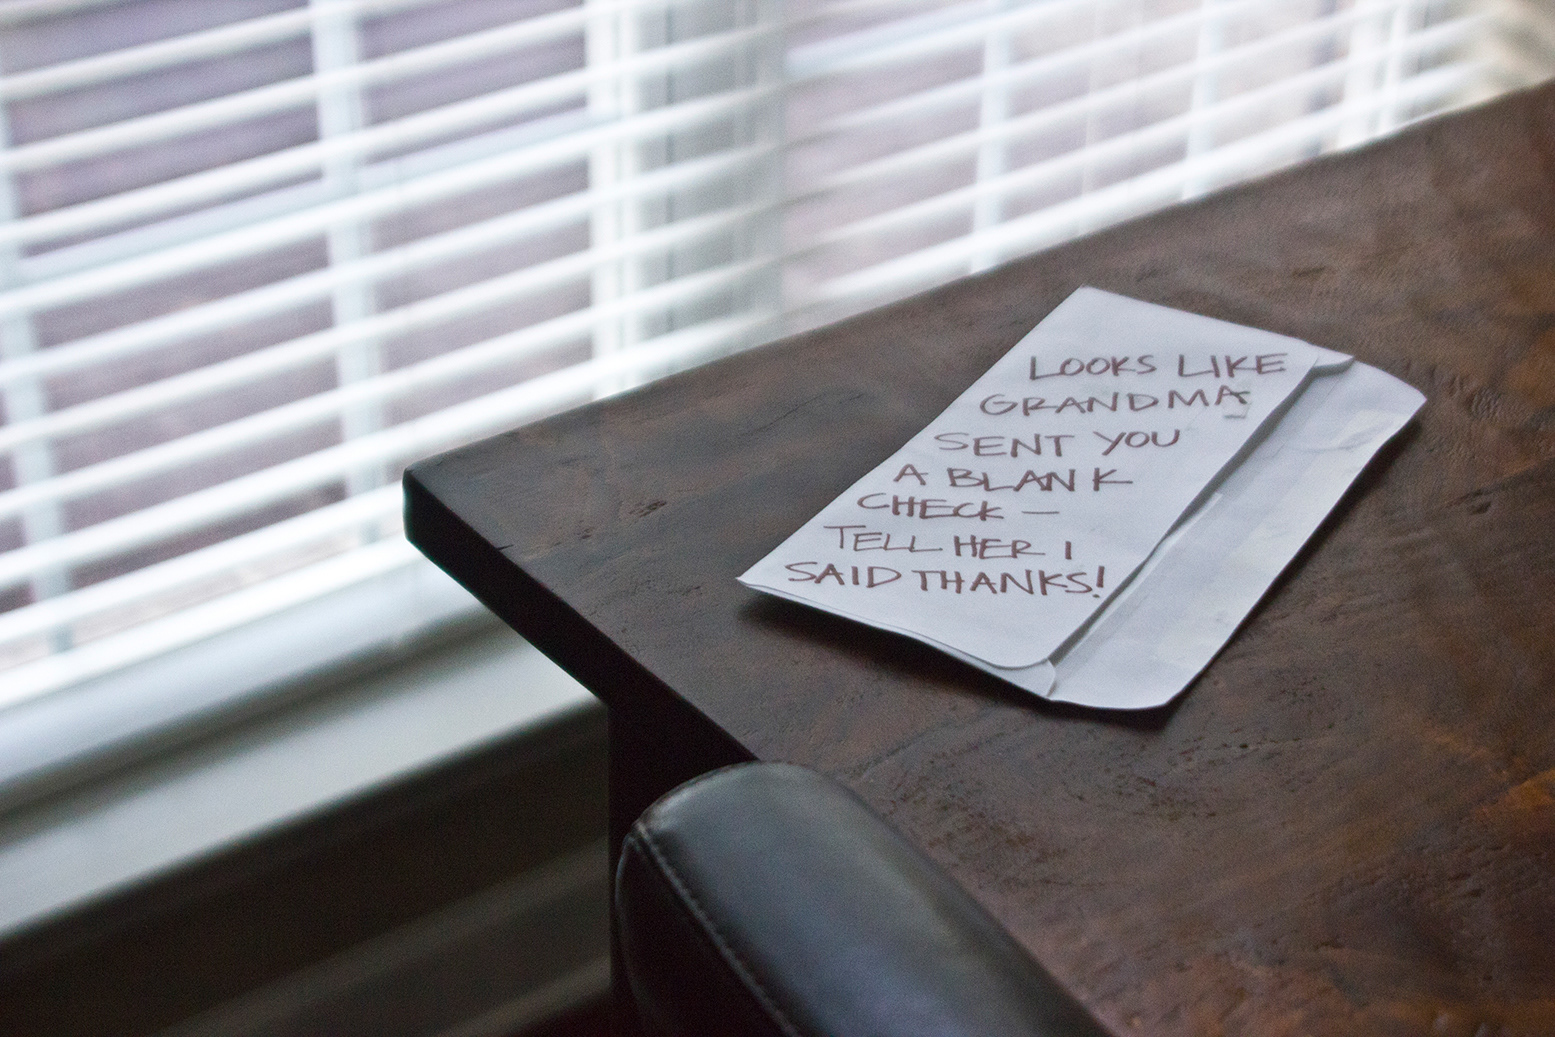 LOOKS LIKE
GRANDMA
SENT YOU
A BLANK
CHECK –
TELL HER I
SAID THANKS!